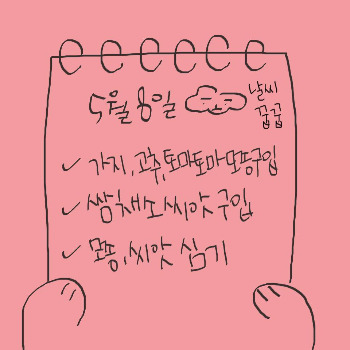 5월 8일
날씨
꿉꿉
가지, 고추, 토마토마 모종구입
쌈채소씨앗구입
모종, 씨앗 심기